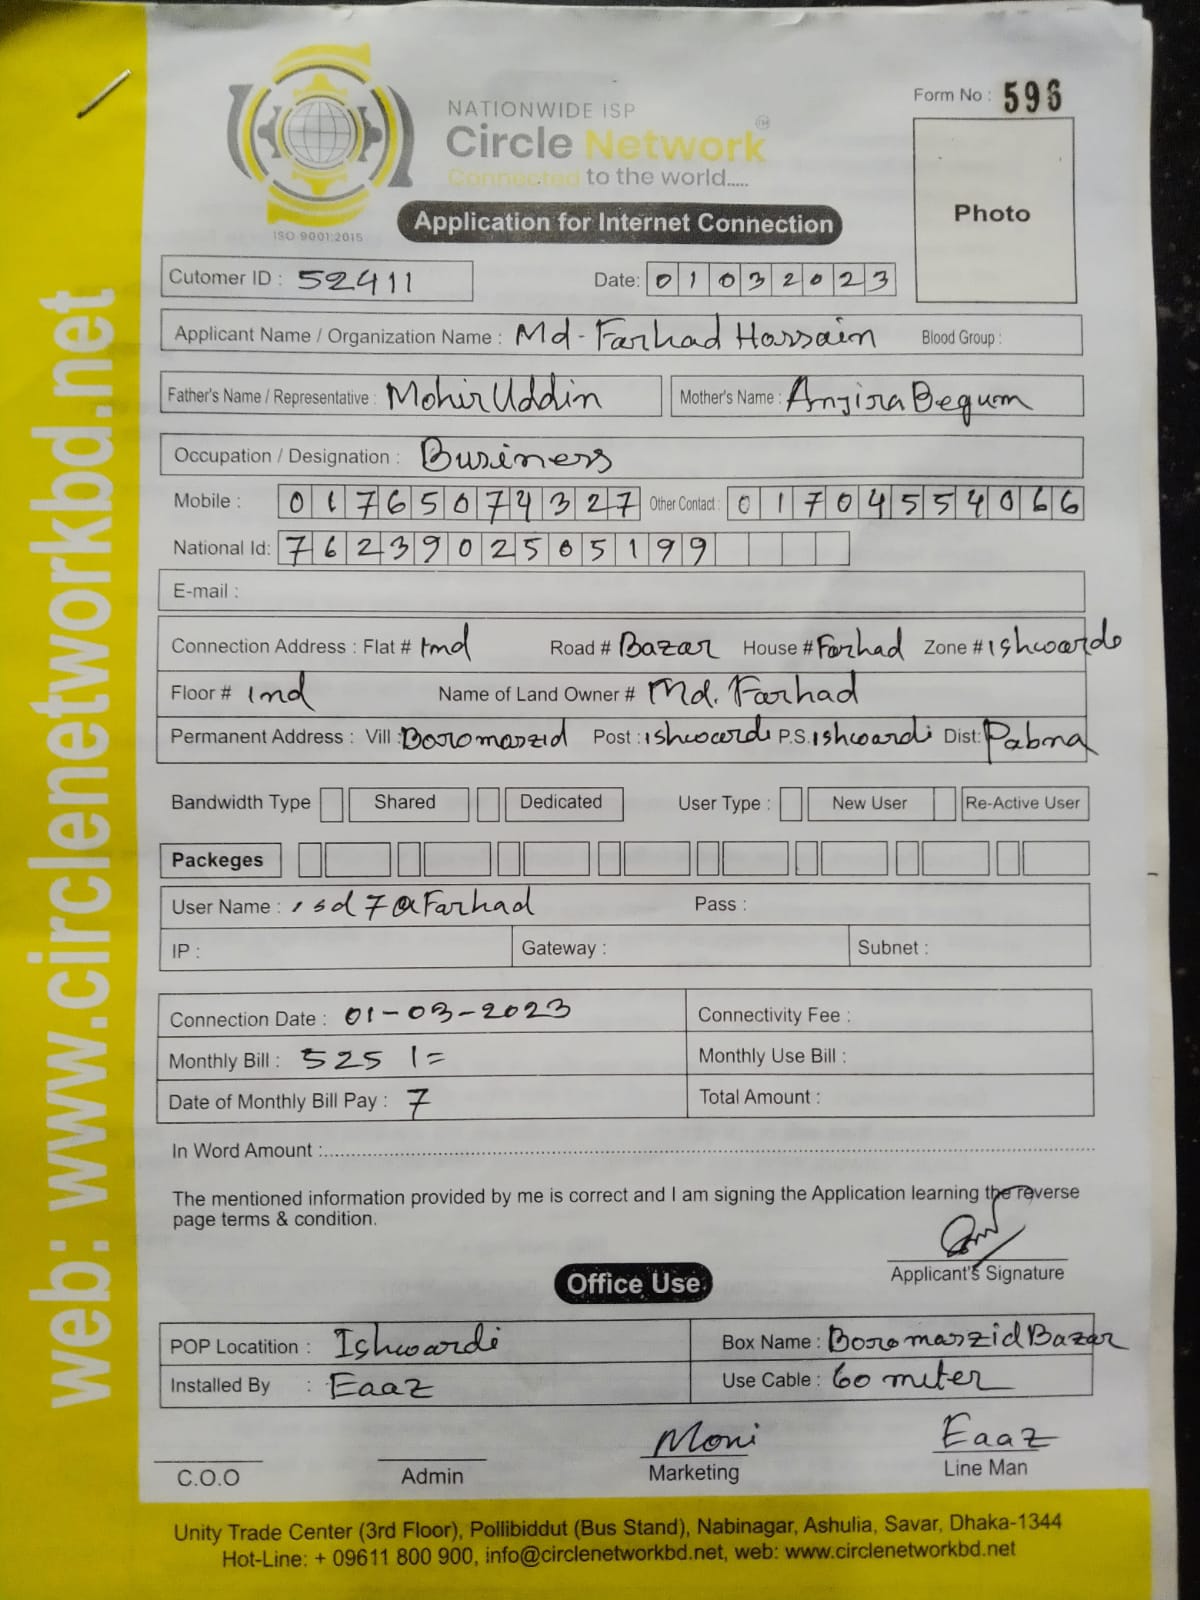 NATIONWIDE ISP
Circle Network TM
Connected to the world.....
ISO 9001:2015
Form No : 596
Photo
Application for Internet Connection
Cutomer ID : 52411 Date: 01032023
Applicant Name / Organization Name : Md - Farhad Hossain Blood Group :
Father's Name / Representative : Mohir Uddin Mother's Name : Anjira Begum
Occupation / Designation : Business
Mobile : 01765074327 Other Contact : 01704554066
National Id: 7623902505199
E-mail :
Connection Address : Flat # 1nd Road # Bazar House # Farhad Zone # ishwardi
Floor # 1nd Name of Land Owner # Md. Farhad
Permanent Address : Vill : Boromaszid Post : ishwardi P.S. ishwardi Dist: Pabna
Bandwidth Type Shared Dedicated User Type : New User Re-Active User
Packeges
User Name : isd7@Farhad Pass :
IP : Gateway : Subnet :
Connection Date : 01-03-2023 Connectivity Fee :
Monthly Bill : 525 /= Monthly Use Bill :
Date of Monthly Bill Pay : 7 Total Amount :
In Word Amount :
The mentioned information provided by me is correct and I am signing the Application learning the reverse
page terms & condition.
Applicant's Signature
Office Use
POP Locatition : Ishwardi Box Name : Boromaszid Bazar
Installed By : Eaaz Use Cable : 60 miter
Moni Eaaz
C.O.O Admin Marketing Line Man
Unity Trade Center (3rd Floor), Pollibiddut (Bus Stand), Nabinagar, Ashulia, Savar, Dhaka-1344
Hot-Line: + 09611 800 900, info@circlenetworkbd.net, web: www.circlenetworkbd.net
web: www.circlenetworkbd.net